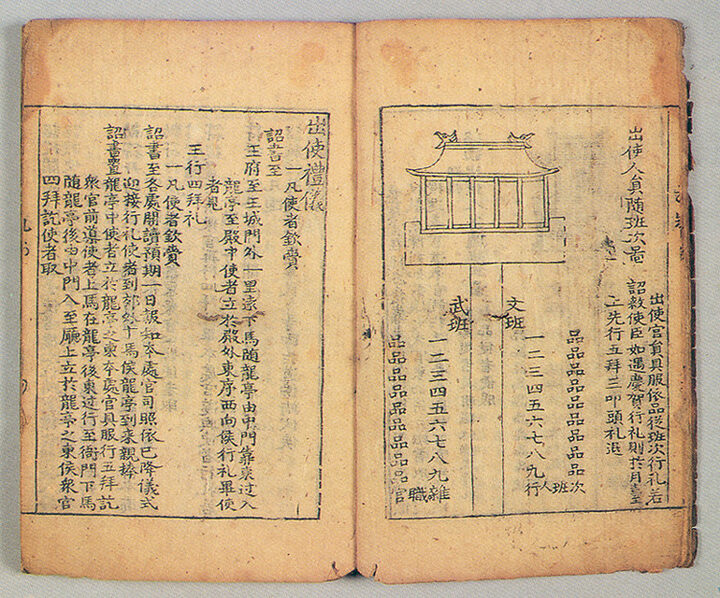 出使人員隨班次圖
出使官員具服依品從班次行礼若
詔敕使臣如遇慶賀行礼則於月臺
上先行五拜三叩頭礼退
品品品品品品品品品次
文班
一二三四五六七八九行
班人
武班
一二三四五六七八九雜
職
品品品品品品品品品官
出使禮儀
一凡使者欽賫
詔書至
王府至王城門外一里遠下馬隨龍亭由中門靠東过入
龍亭至殿中使者立於殿外東序西向候行礼畢使
者見
王行四拜礼
一凡使者欽賫
詔書至各處開讀預期一日報知本處官司照依已降儀式
迎接行礼使者到郊外下馬候龍亭到來親捧
詔書置龍亭中使者立於龍亭之東本處官具服行五拜訖
衆官前導使者上馬在龍亭後東过行至衙門下馬
隨龍亭後由中門入至廳上立於龍亭之東候衆官
四拜訖使者取